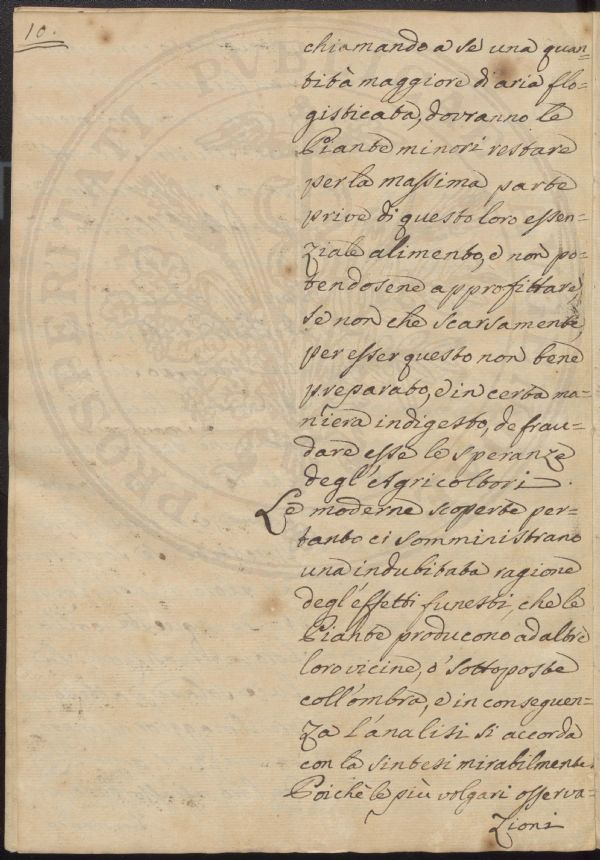 10.
chiamando a sè una quan=
tità maggiore di aria flo=
gisticata, dovranno le
Piante minori restare
per la massima parte
prive di questo loro essen=
ziale alimento, e non po=
tendosene approfittare
se non che scarsamente
per esser questo non bene
preparato, e in certa ma=
niera indigesto, defrau=
dare esse le speranze
degl'Agricoltori.
Le moderne scoperte per=
tanto ci somministrano
una indubitata ragione
degl'effetti funesti, che le
Piante producono ad altre
loro vicine, o' sottoposte
coll'ombra, e in conseguen=
za l'analisi si accorda
con la sintesi mirabilmente.
Poichè le più volgari osserva=
zioni
PROSPERITATI PVB